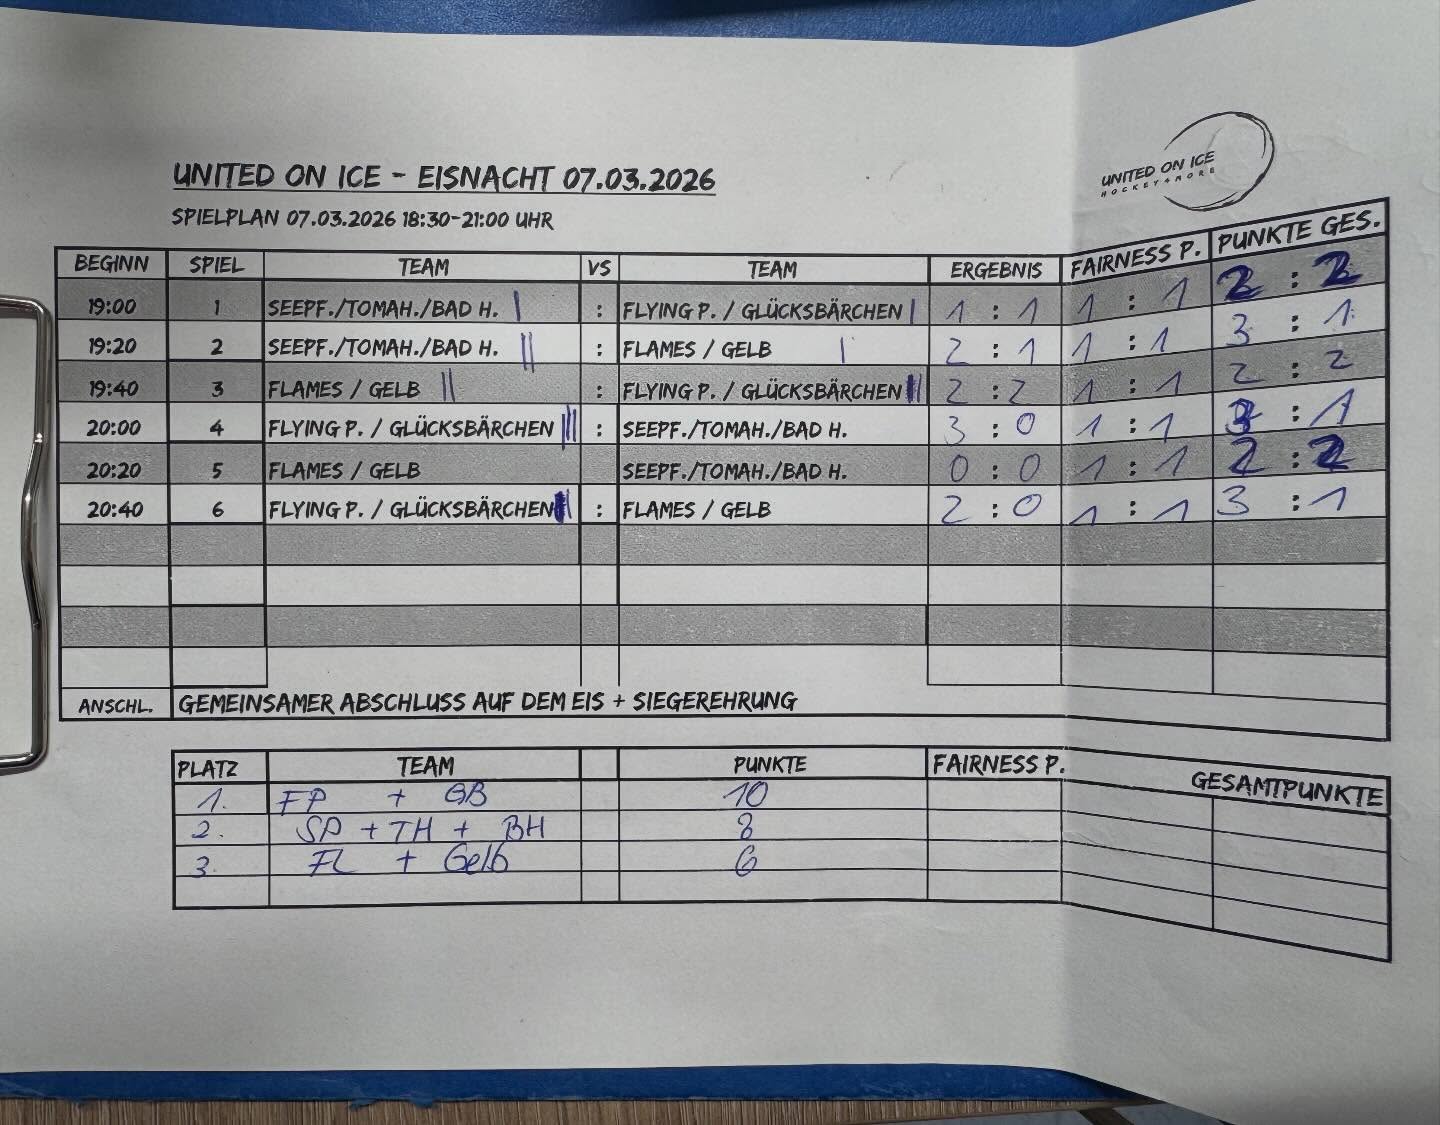 UNITED ON ICE - EISNACHT 07.03.2026
UNITED ON ICE
HOCKEY4MORE
SPIELPLAN 07.03.2026 18:30-21:00 UHR
BEGINN SPIEL TEAM VS TEAM ERGEBNIS FAIRNESS P. PUNKTE GES.
19:00 1 SEEPF./TOMAH./BAD H. | : FLYING P. / GLÜCKSBÄRCHEN | 1 : 1 1 : 1 2 : 2
19:20 2 SEEPF./TOMAH./BAD H. || : FLAMES / GELB | 2 : 1 1 : 1 3 : 1
19:40 3 FLAMES / GELB || : FLYING P. / GLÜCKSBÄRCHEN || 2 : 2 1 : 1 2 : 2
20:00 4 FLYING P. / GLÜCKSBÄRCHEN ||| : SEEPF./TOMAH./BAD H. 3 : 0 1 : 1 3 : 1
20:20 5 FLAMES / GELB SEEPF./TOMAH./BAD H. 0 : 0 1 : 1 2 : 2
20:40 6 FLYING P. / GLÜCKSBÄRCHEN || : FLAMES / GELB 2 : 0 1 : 1 3 : 1
ANSCHL. GEMEINSAMER ABSCHLUSS AUF DEM EIS + SIEGEREHRUNG
PLATZ TEAM PUNKTE FAIRNESS P. GESAMTPUNKTE
1. FP + GB 10
2. SP + TH + BH 8
3. FL + Gelb 6